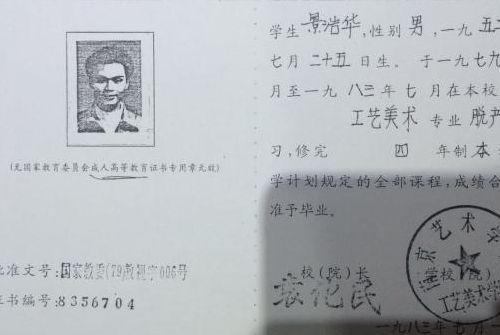 (无国家教育委员会成人高等教育证书专用章无效)
批准文号:国家教委(79)教视字006号
证书编号:8356704
学生景浩华,性别男,一九五
七月二十五日生。于一九七九
月至一九八三年七月在本校
工艺美术 专业 脱产
习,修完 四 年制本
学计划规定的全部课程,成绩合
准予毕业。
校(院)长
学校(院)
京艺术
工艺美术学
一九八三年七